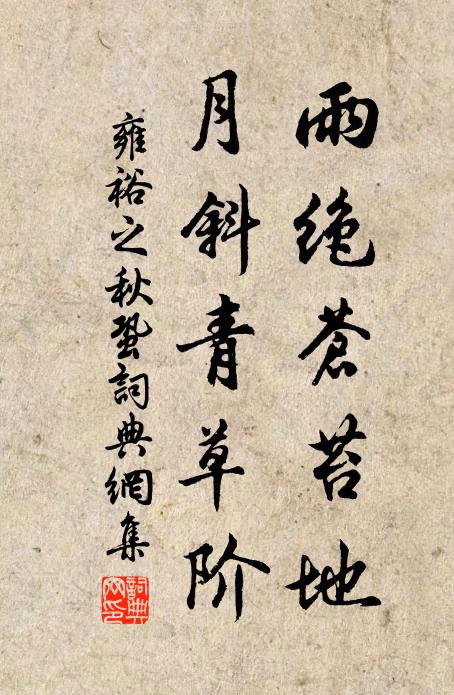 雨绝苍苔地
月斜青草阶
雍裕之秋蛩詞典網集
詞典網印